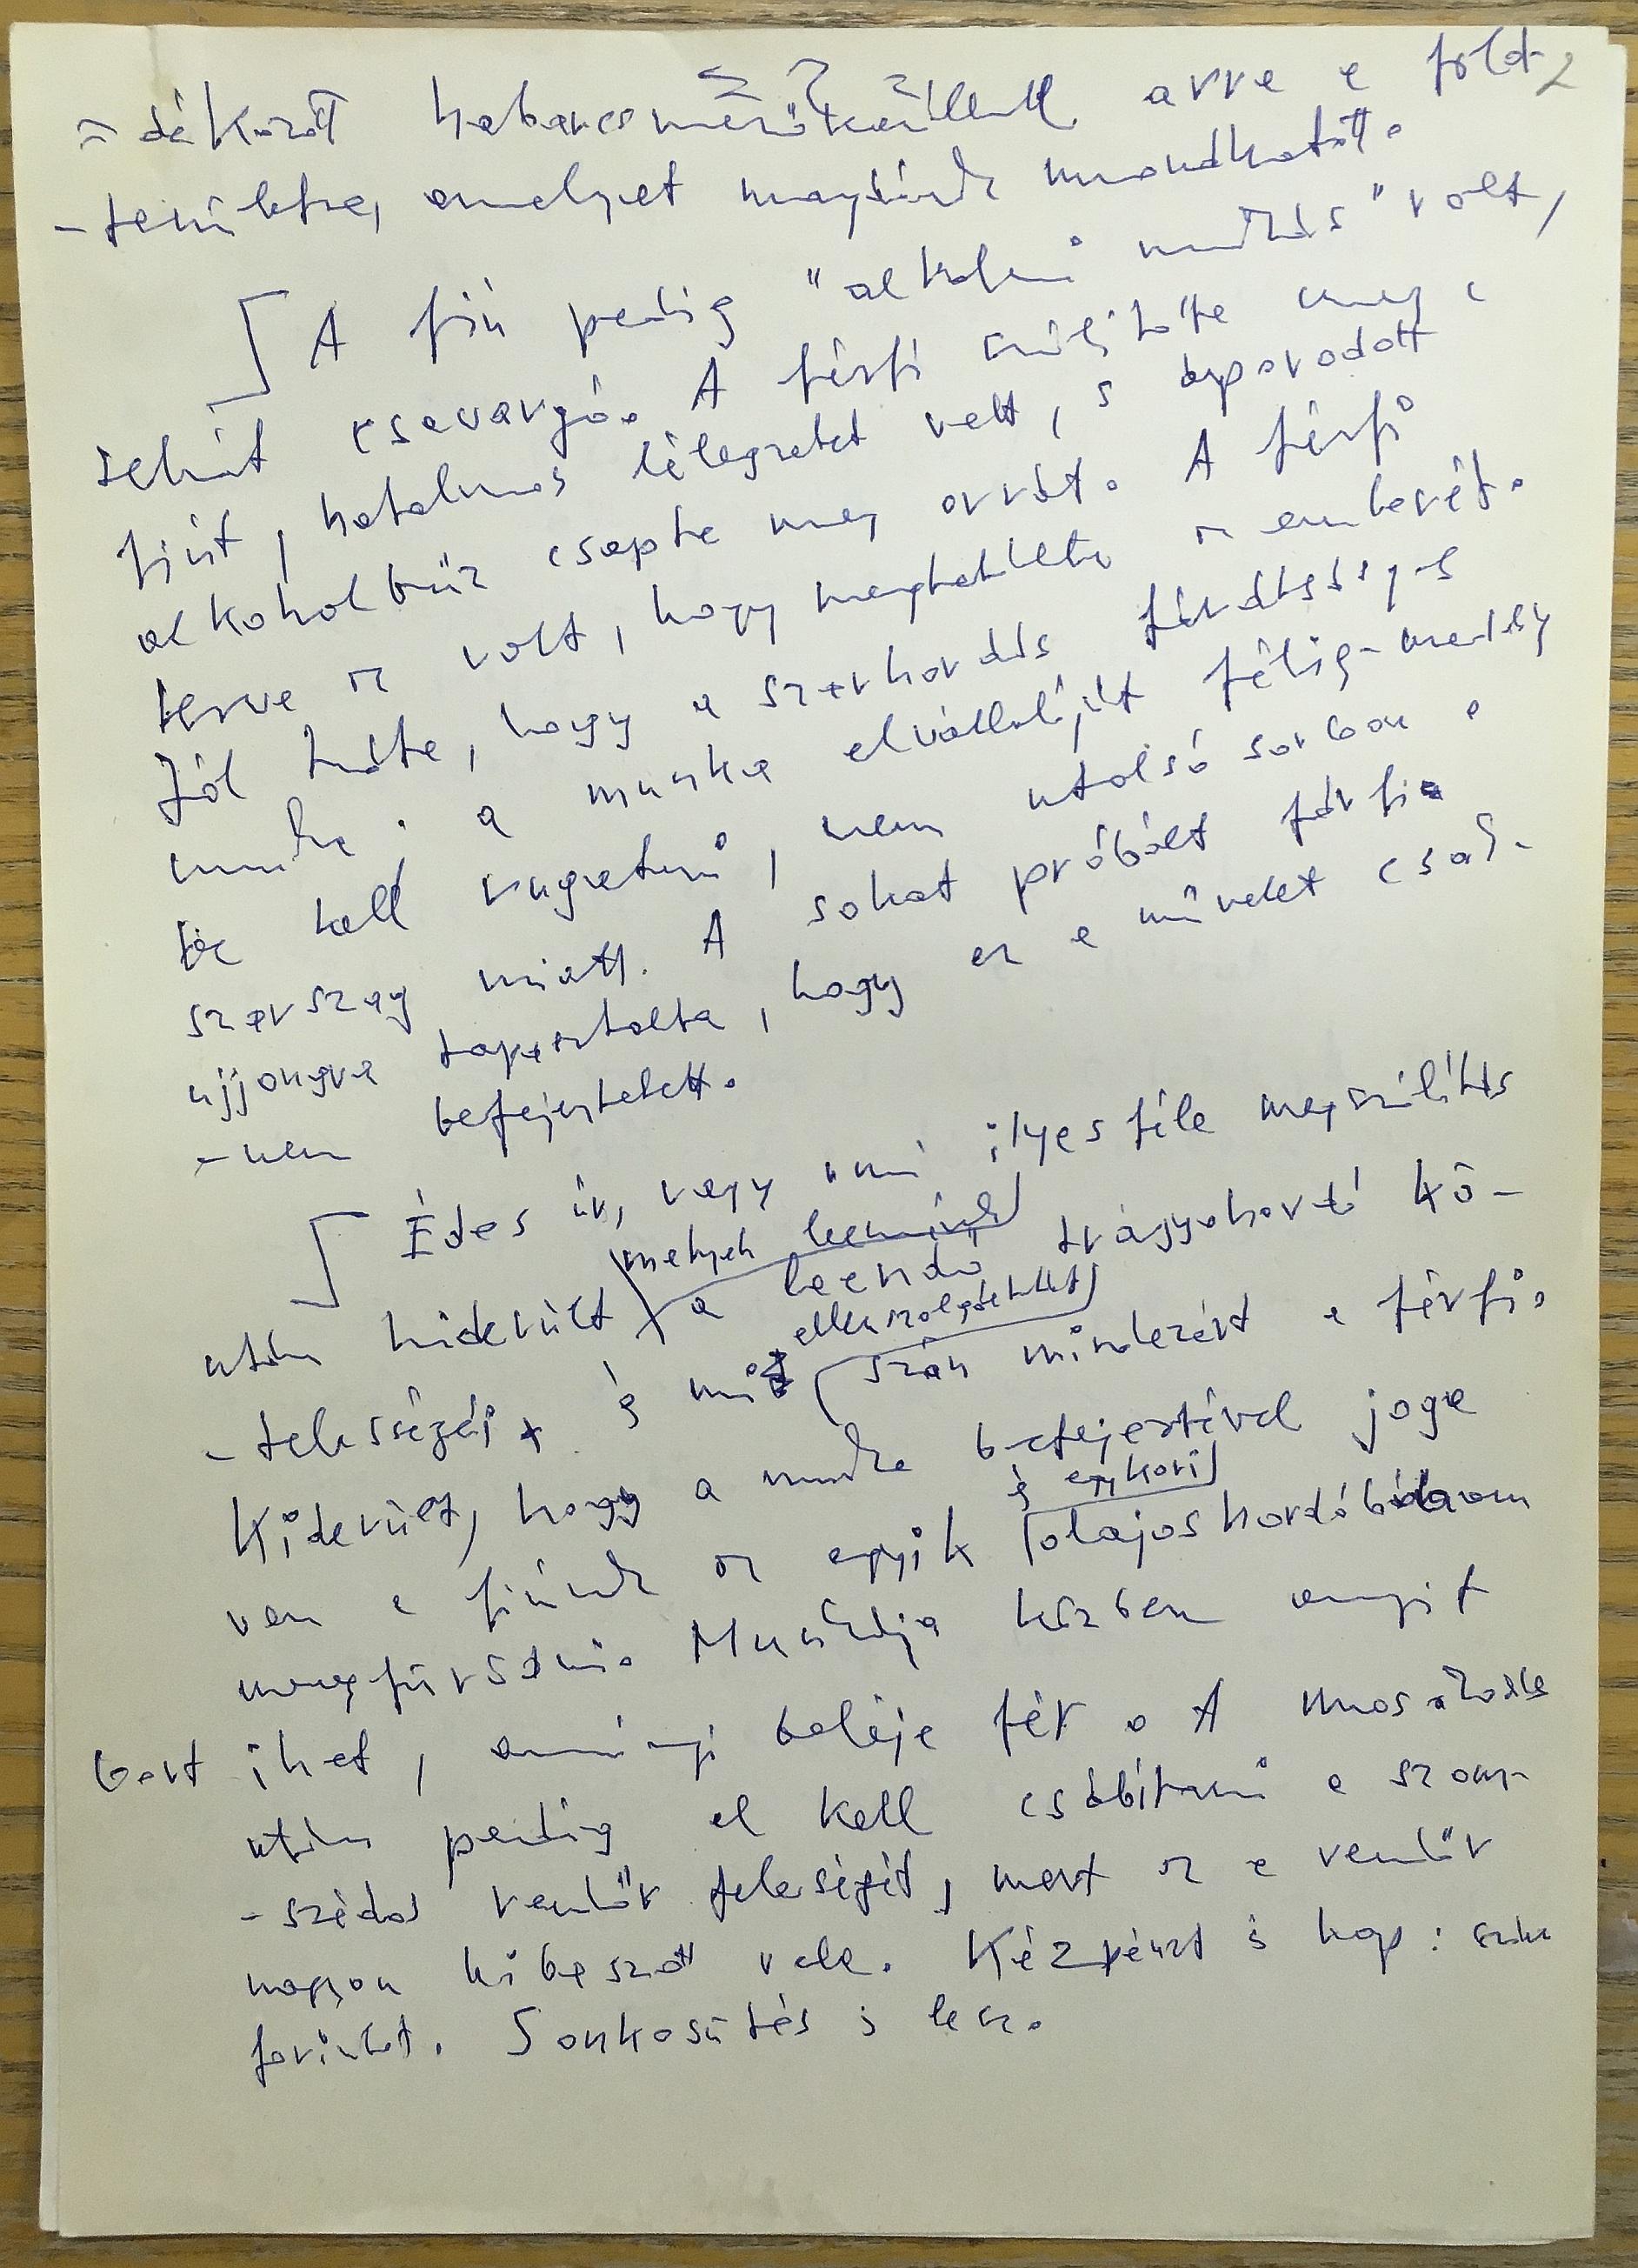 -dékozott habarcsmerőkanállal arra a föld- 2
-területre, amelyet magáénak mondhatott.
A fiú pedig "alkalmi munkás" volt,
tehát csavargó. A férfi szólította meg a
fiút, hatalmas lélegzetet vett, s áporodott
alkoholbűz csapta meg orrát. A férfi
terve az volt, hogy megtalálta az emberét.
Jól tudta, hogy a szarhordás fáradtságos
munka; a munka elvállalóját félig-meddig
be kell rúgatni, nem utolsó sorban a
szarszag miatt. A sokat próbált férfi
ujjongva tapasztalta, hogy ez a művelet csak-
-nem befejeztetett.
Édes úr, vagy mi ilyesféle megszólítás
után kiderült, melyek a leendő trágyahordó kö-
-telességei, és mit ellenszolgáltatást szán mindezért a férfi.
Kiderült, hogy a munka befejeztével joga
van a fiúnak az egyik és egykori olajoshordóban
megfürödni. Munkája közben annyit
bort ihat, amennyi beléje fér. A mosakodás
után pedig el kell csábítani a szom-
-szédos rendőr feleségét, mert az a rendőr
nagyon kibaszott vele. Készpénzt is kap: száz
forintot. Sonkasütés is lesz.